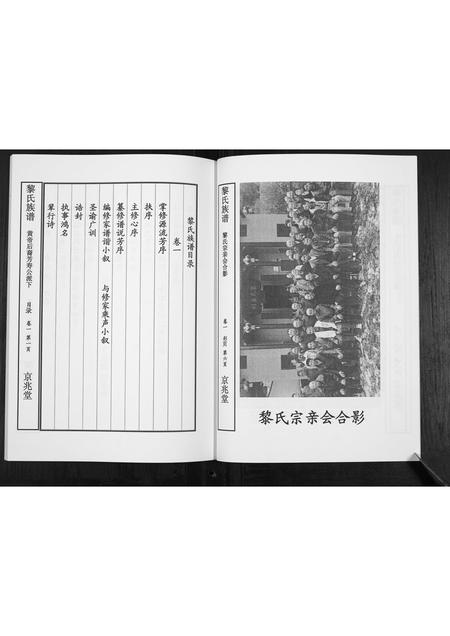 黎氏族谱
黎氏宗亲会合影
卷一 彩页 第六页
京兆堂
黎氏宗亲会合影
黎氏族谱目录
卷一
掌修源流芳序
扶序
主修心序
纂修谱说芳序
编修家谱谐小叙 与修家乘声小叙
圣谕广训
诰封
执事鸿名
辈行诗
黎氏族谱
黄帝后裔芳寿公派下
目录 卷一 第一页
京兆堂